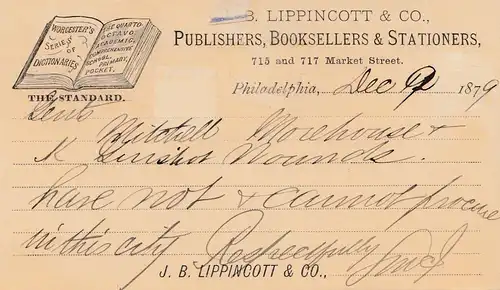 J. B. LIPPINCOTT & CO.,
PUBLISHERS, BOOKSELLERS & STATIONERS,
715 and 717 Market Street.
WORCESTER'S
SERIES
OF
DICTIONARIES
QUARTO.
OCTAVO.
ACADEMIC.
COMPREHENSIVE
SCHOOL.
PRIMARY.
POCKET.
THE STANDARD.
Philadelphia, Dec 9 1879
Gents
Mitchell Morehouse &
K Gunshot Wounds.
have not & cannot procure
in this city Respectfully
J. B. LIPPINCOTT & CO.,